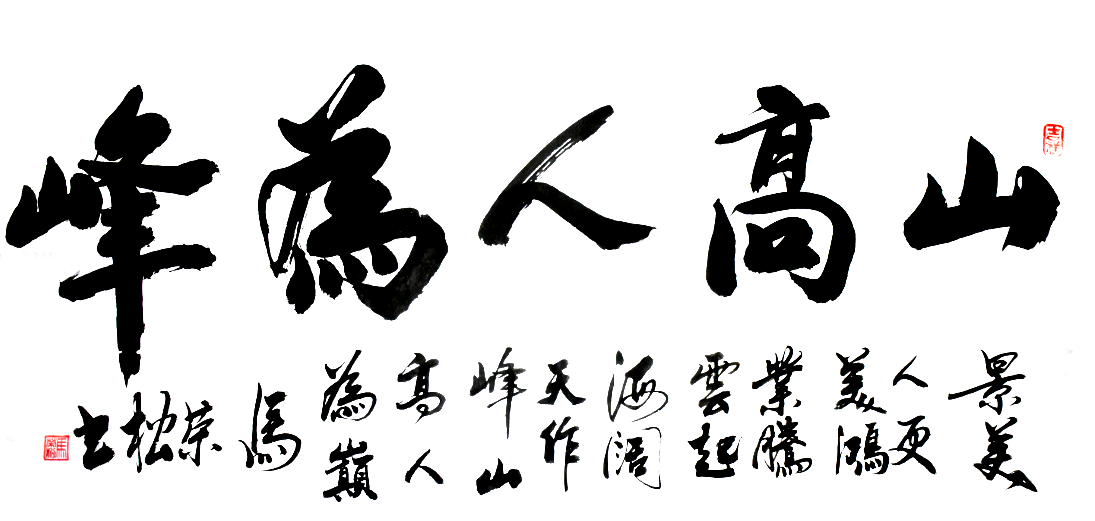 山高人為峰
景美
人更
美鴻
業騰
雲起
海闊
天作
峰山
高人
為巔
馬
榮松書